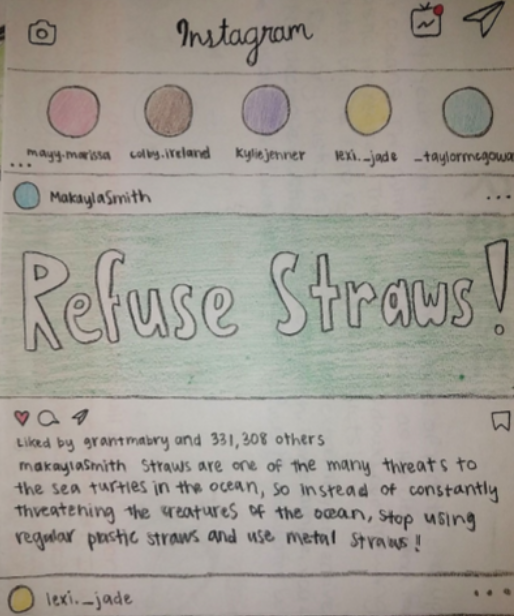 Instagram
mayy.marissa colby.ireland Kyliejenner lexi._jade _taylormcgowa
...
MakaylaSmith ...
Refuse Straws!
Liked by grantmabry and 331,308 others
makaylasmith Straws are one of the many threats to
the sea turtles in the ocean, so instead of constantly
threatening the creatures of the ocean, stop using
regular plastic straws and use metal straws!
lexi._jade ...